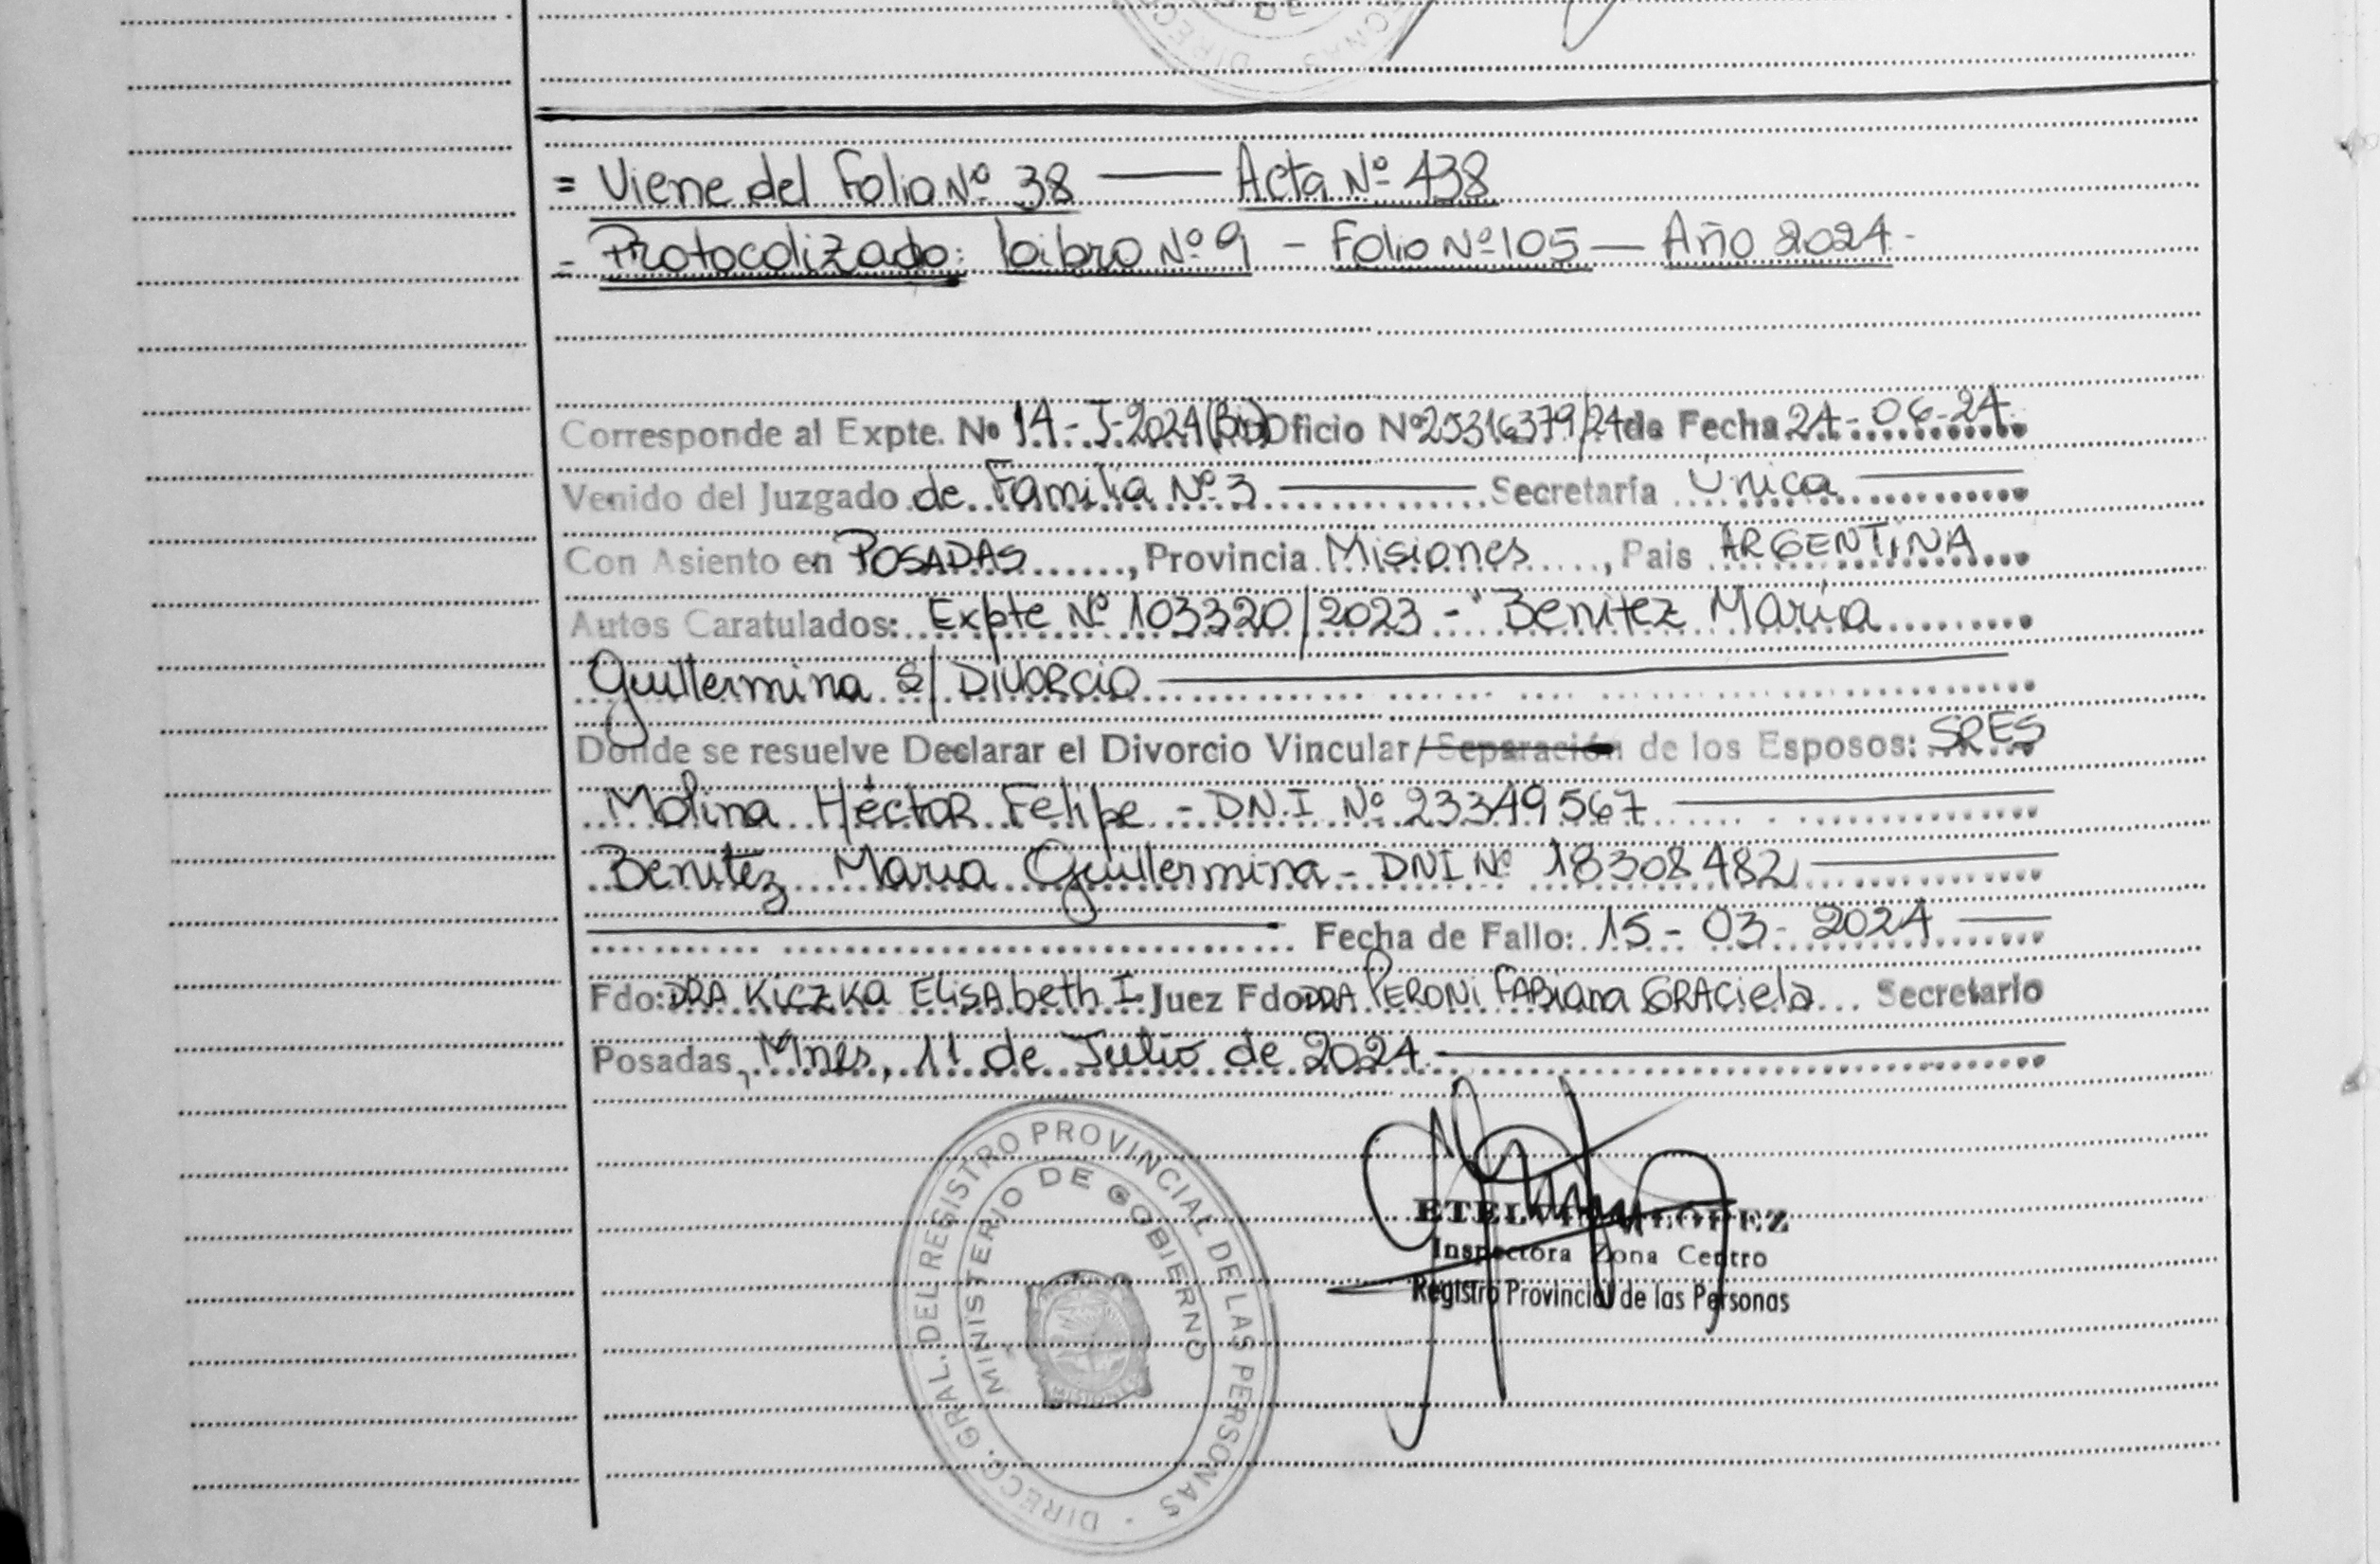 = Viene del Folio Nº 38 — Acta Nº 438
= Protocolizado: Libro Nº 9 - Folio Nº 105 — Año 2024 -
Corresponde al Expte. Nº 14-J-2024 (Bis) Oficio Nº 25316379/24 de Fecha 24-06-24
Venido del Juzgado de Familia Nº 3 — Secretaría Unica —
Con Asiento en POSADAS, Provincia Misiones, Pais ARGENTINA
Autos Caratulados: Expte Nº 103320/2023 - " Benitez María
Guillermina S/ Divorcio —
Donde se resuelve Declarar el Divorcio Vincular/Separación de los Esposos: SRES
Molina Héctor Felipe - D.N.I Nº 23349567 —
Benitez María Guillermina - DNI Nº 18308482 —
— Fecha de Fallo: 15-03-2024 —
Fdo: DRA Kiczka Elisabeth I. Juez Fdo DRA PERONI FABiana GRACiela Secretario
Posadas, Mnes, 11 de Julio de 2024. —
DIRECC. GRAL. DEL REGISTRO PROVINCIAL DE LAS PERSONAS
MINISTERIO DE GOBIERNO
MISIONES
Inspectora Zona Centro
Registro Provincial de las Personas